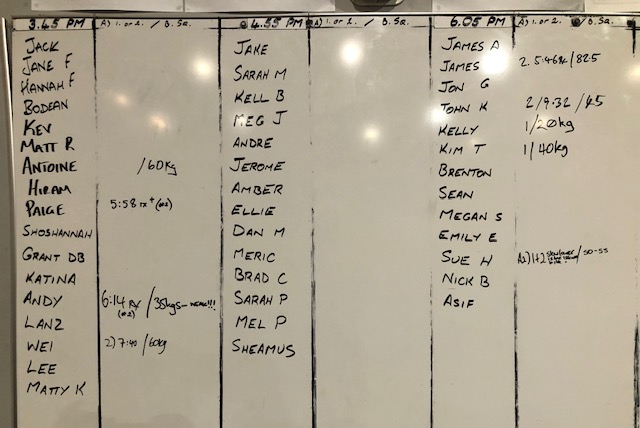 3.45 PM A) 1. or 2. / B. Sq.
JACK
JANE F
HANNAH F
BODEAN
KEV
MATT R
ANTOINE /60kg
HIRAM
PAIGE 5:58 rx+ (#2)
SHOSHANNAH
GRANT DB
KATINA
ANDY 6:14 Rx (#2) /35kgs -
LANZ
WEI 2) 7:40 /60kg
LEE
MATTY K
4.55 PM A) 1. or 2. / B. Sq.
JAKE
SARAH M
KELL B
MEG J
ANDRE
JEROME
AMBER
ELLIE
DAN M
MERIC
BRAD C
SARAH P
MEL P
SHEAMUS
6.05 PM A) 1. or 2. / B. Sq.
JAMES A
JAMES 2. 5:46 /825
JON G
JOHN K 2/9:32 /
KELLY 1/20kg
KIM T 1/40kg
BRENTON
SEAN
MEGAN S
EMILY E
SUE H A) 1+2 /50-55
NICK B
ASIF